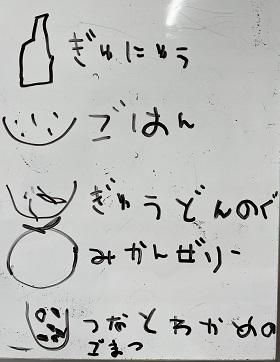 ぎゅにゅう
ごはん
ぎゅうどんのぐ
みかんぜリー
つなとわかめの
ごまつ